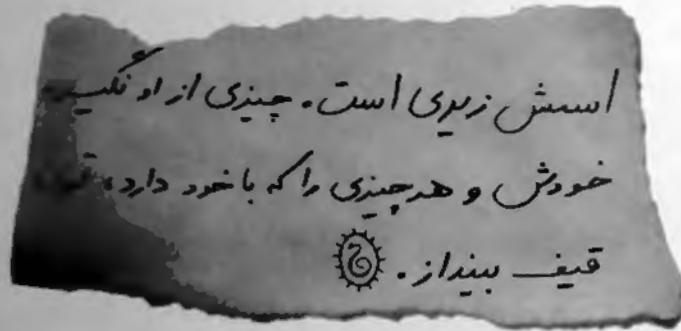 اسمش زیری است. چیزی از او نگیر.
خودش و هرچیزی را که با خود دارد،
قیف بینداز.